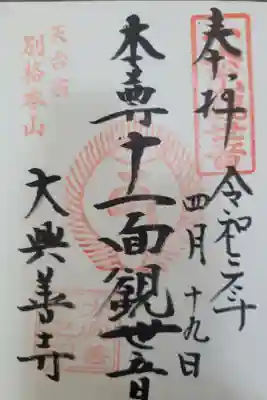 奉拝
令和二年
四月十九日
本尊十一面觀世音
天台宗
別格本山
大興善寺